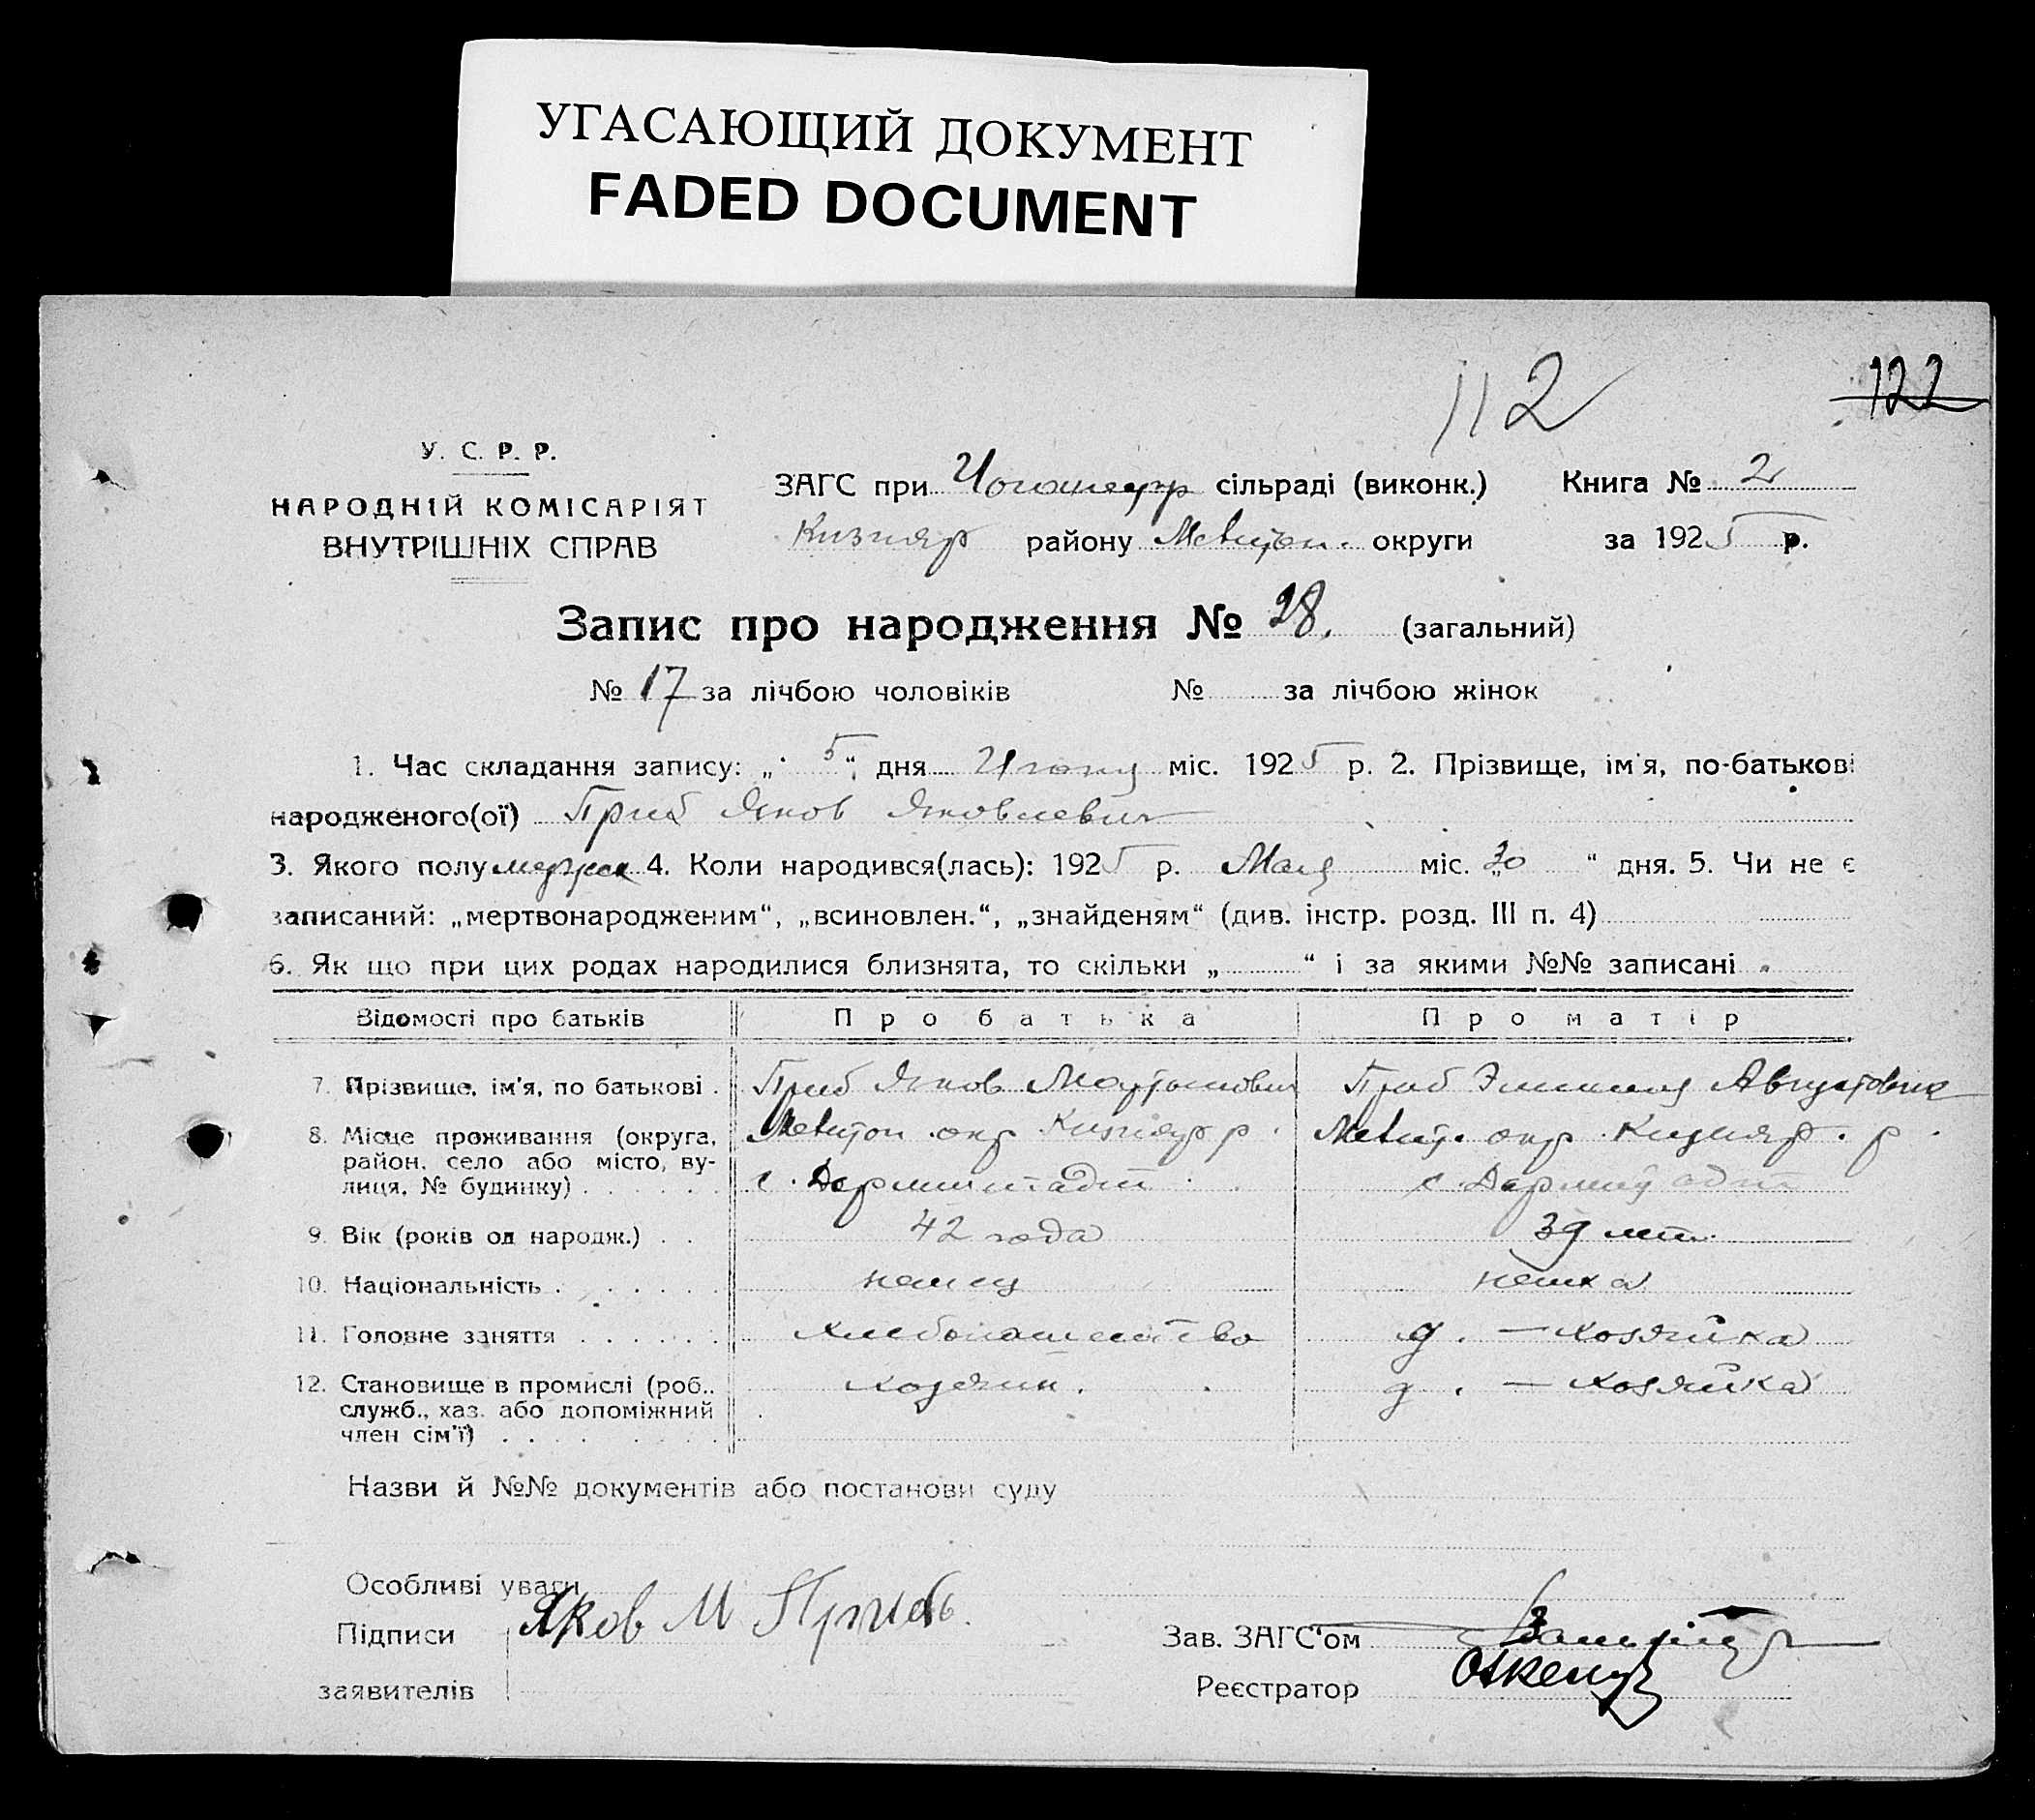 УГАСАЮЩИЙ ДОКУМЕНТ
FADED DOCUMENT
112
122
У. С. Р. Р.
НАРОДНІЙ КОМІСАРІЯТ
ВНУТРІШНІХ СПРАВ
ЗАГС при сільраді (виконк.) Книга № 2
Кизияр району Мелитоп. округи за 1925 р.
Запис про народження № 28. (загальний)
№ 17 за лічбою чоловіків № за лічбою жінок
1. Час складання запису: „ 5 “ дня міс. 1925 р. 2. Прізвище, ім'я, по-батькові
народженого(ої) Приб Яков Яковлевич
3. Якого полу мужск 4. Коли народився(лась): 1925 р. Мая міс. „30 “ дня. 5. Чи не є
записаний: „мертвонародженим“, „всиновлен.“, „знайденям“ (див. інстр. розд. III п. 4)
6. Як що при цих родах народилися близнята, то скільки „ “ і за якими №№ записані
Відомості про батьків Про батька Про матір
7. Прізвище, ім'я, по батькові . Приб Яков Мартынович Приб Августовна
8. Місце проживання (округа, Мелитоп. окр Кизияр р. Мелит. окр. Кизияр. р.
район, село або місто, ву-
лиця, № будинку) . . . . . . с. Дармштадт с. Дармштадт
9. Вік (років од народж.) . . 42 года 39 лет.
10. Національність . . . . . . немец немка
11. Головне заняття . . . . . . хлебопашество д. — хозяйка
12. Становище в промислі (роб., хозяин. д. — хозяйка
служб., хаз. або допоміжний
член сім'ї) . . . . . . .
Назви й №№ документів або постанови суду
Особливі уваги
Підписи Яков М Прибь.
Зав. ЗАГС'ом
заявителів
Реєстратор